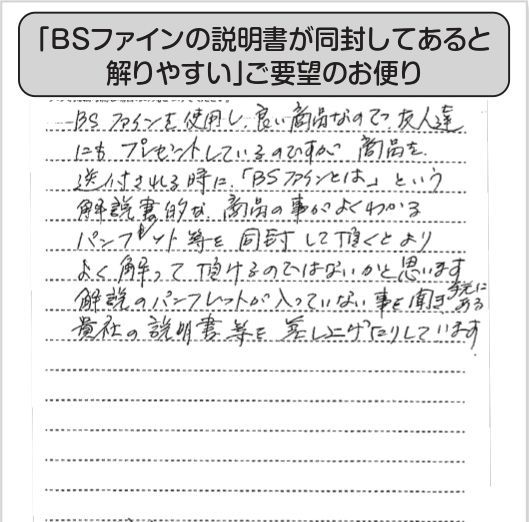 「BSファインの説明書が同封してあると
解りやすい」ご要望のお便り
BSファインを使用し、良い商品なので、友人達
にもプレゼントしているのですが商品を
送付される時に、「BSファインとは」という
解説書的な、商品の事がよくわかる
パンフレット等を同封して頂くとより
よく解って頂けるのではないかと思います
解説のパンフレットが入っていない事を聞き手元にある
貴社の説明書等を差し上げたりしています